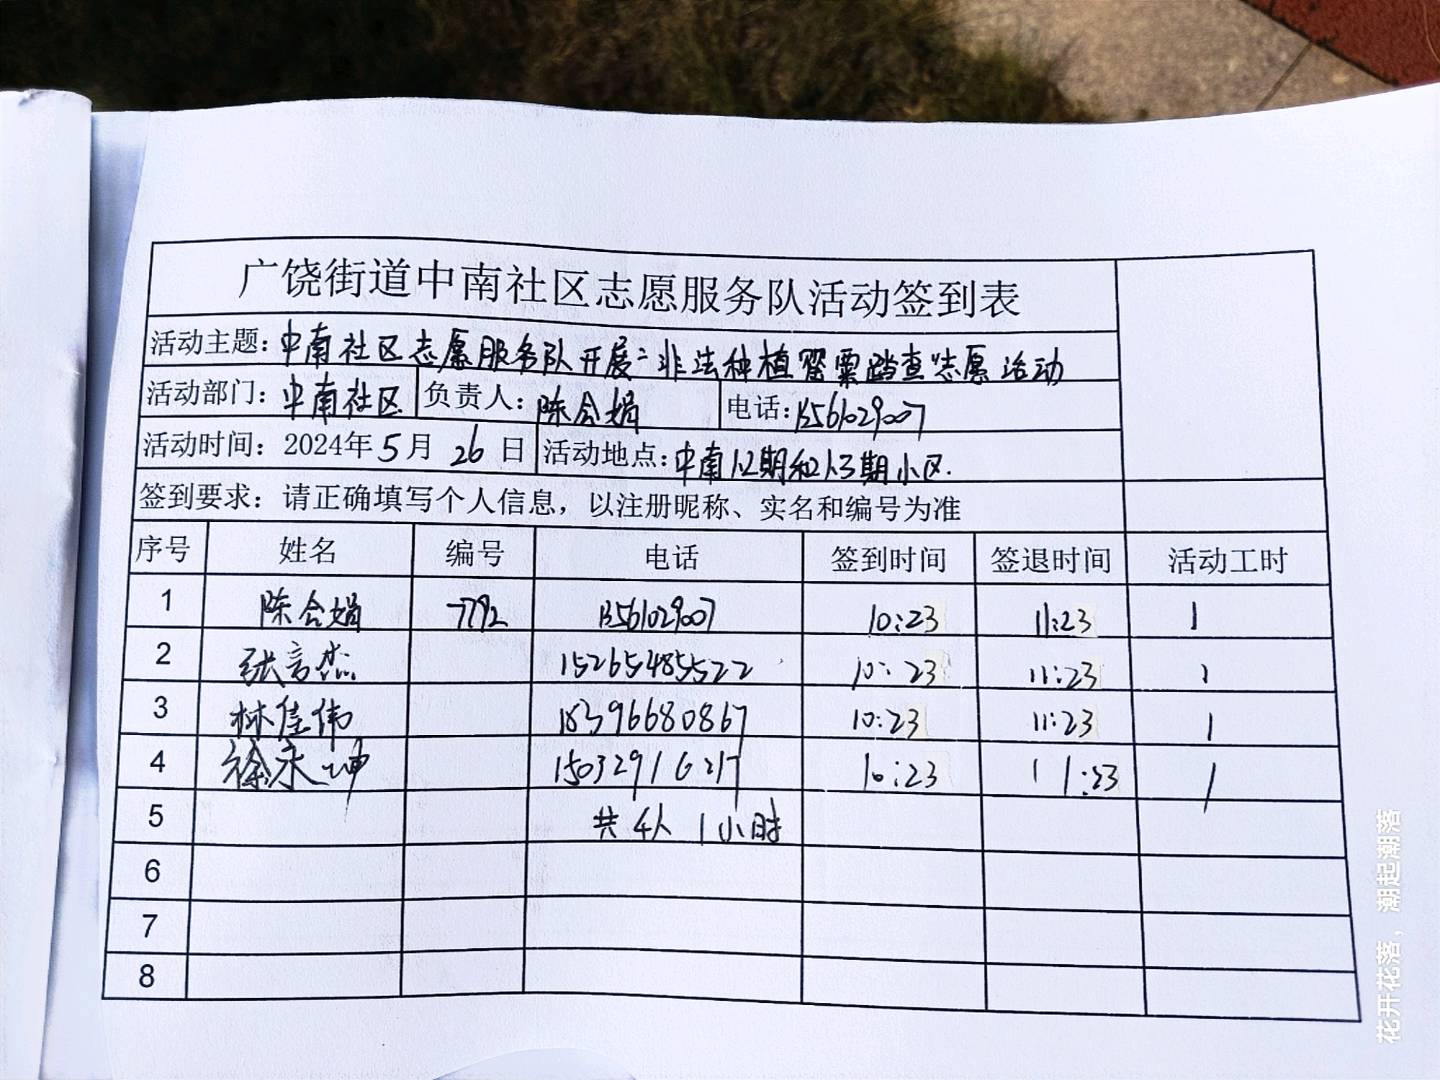 广饶街道中南社区志愿服务队活动签到表
活动主题：中南社区志愿服务队开展"非法种植罂粟踏查"志愿活动
活动部门：中南社区 负责人：陈会娟 电话：13561029007
活动时间：2024年5月26日 活动地点：中南1.2期和2.1.3期小区.
签到要求：请正确填写个人信息，以注册昵称、实名和编号为准
序号 姓名 编号 电话 签到时间 签退时间 活动工时
1 陈会娟 7792 13561029007 10:23 11:23 1
2 张言杰 15265485522 10:23 11:23 1
3 林佳伟 18396680867 10:23 11:23 1
4 徐永坤 15032916217 10:23 11:23 1
5 共4人 1小时
6
7
8
花开花落，潮起潮落